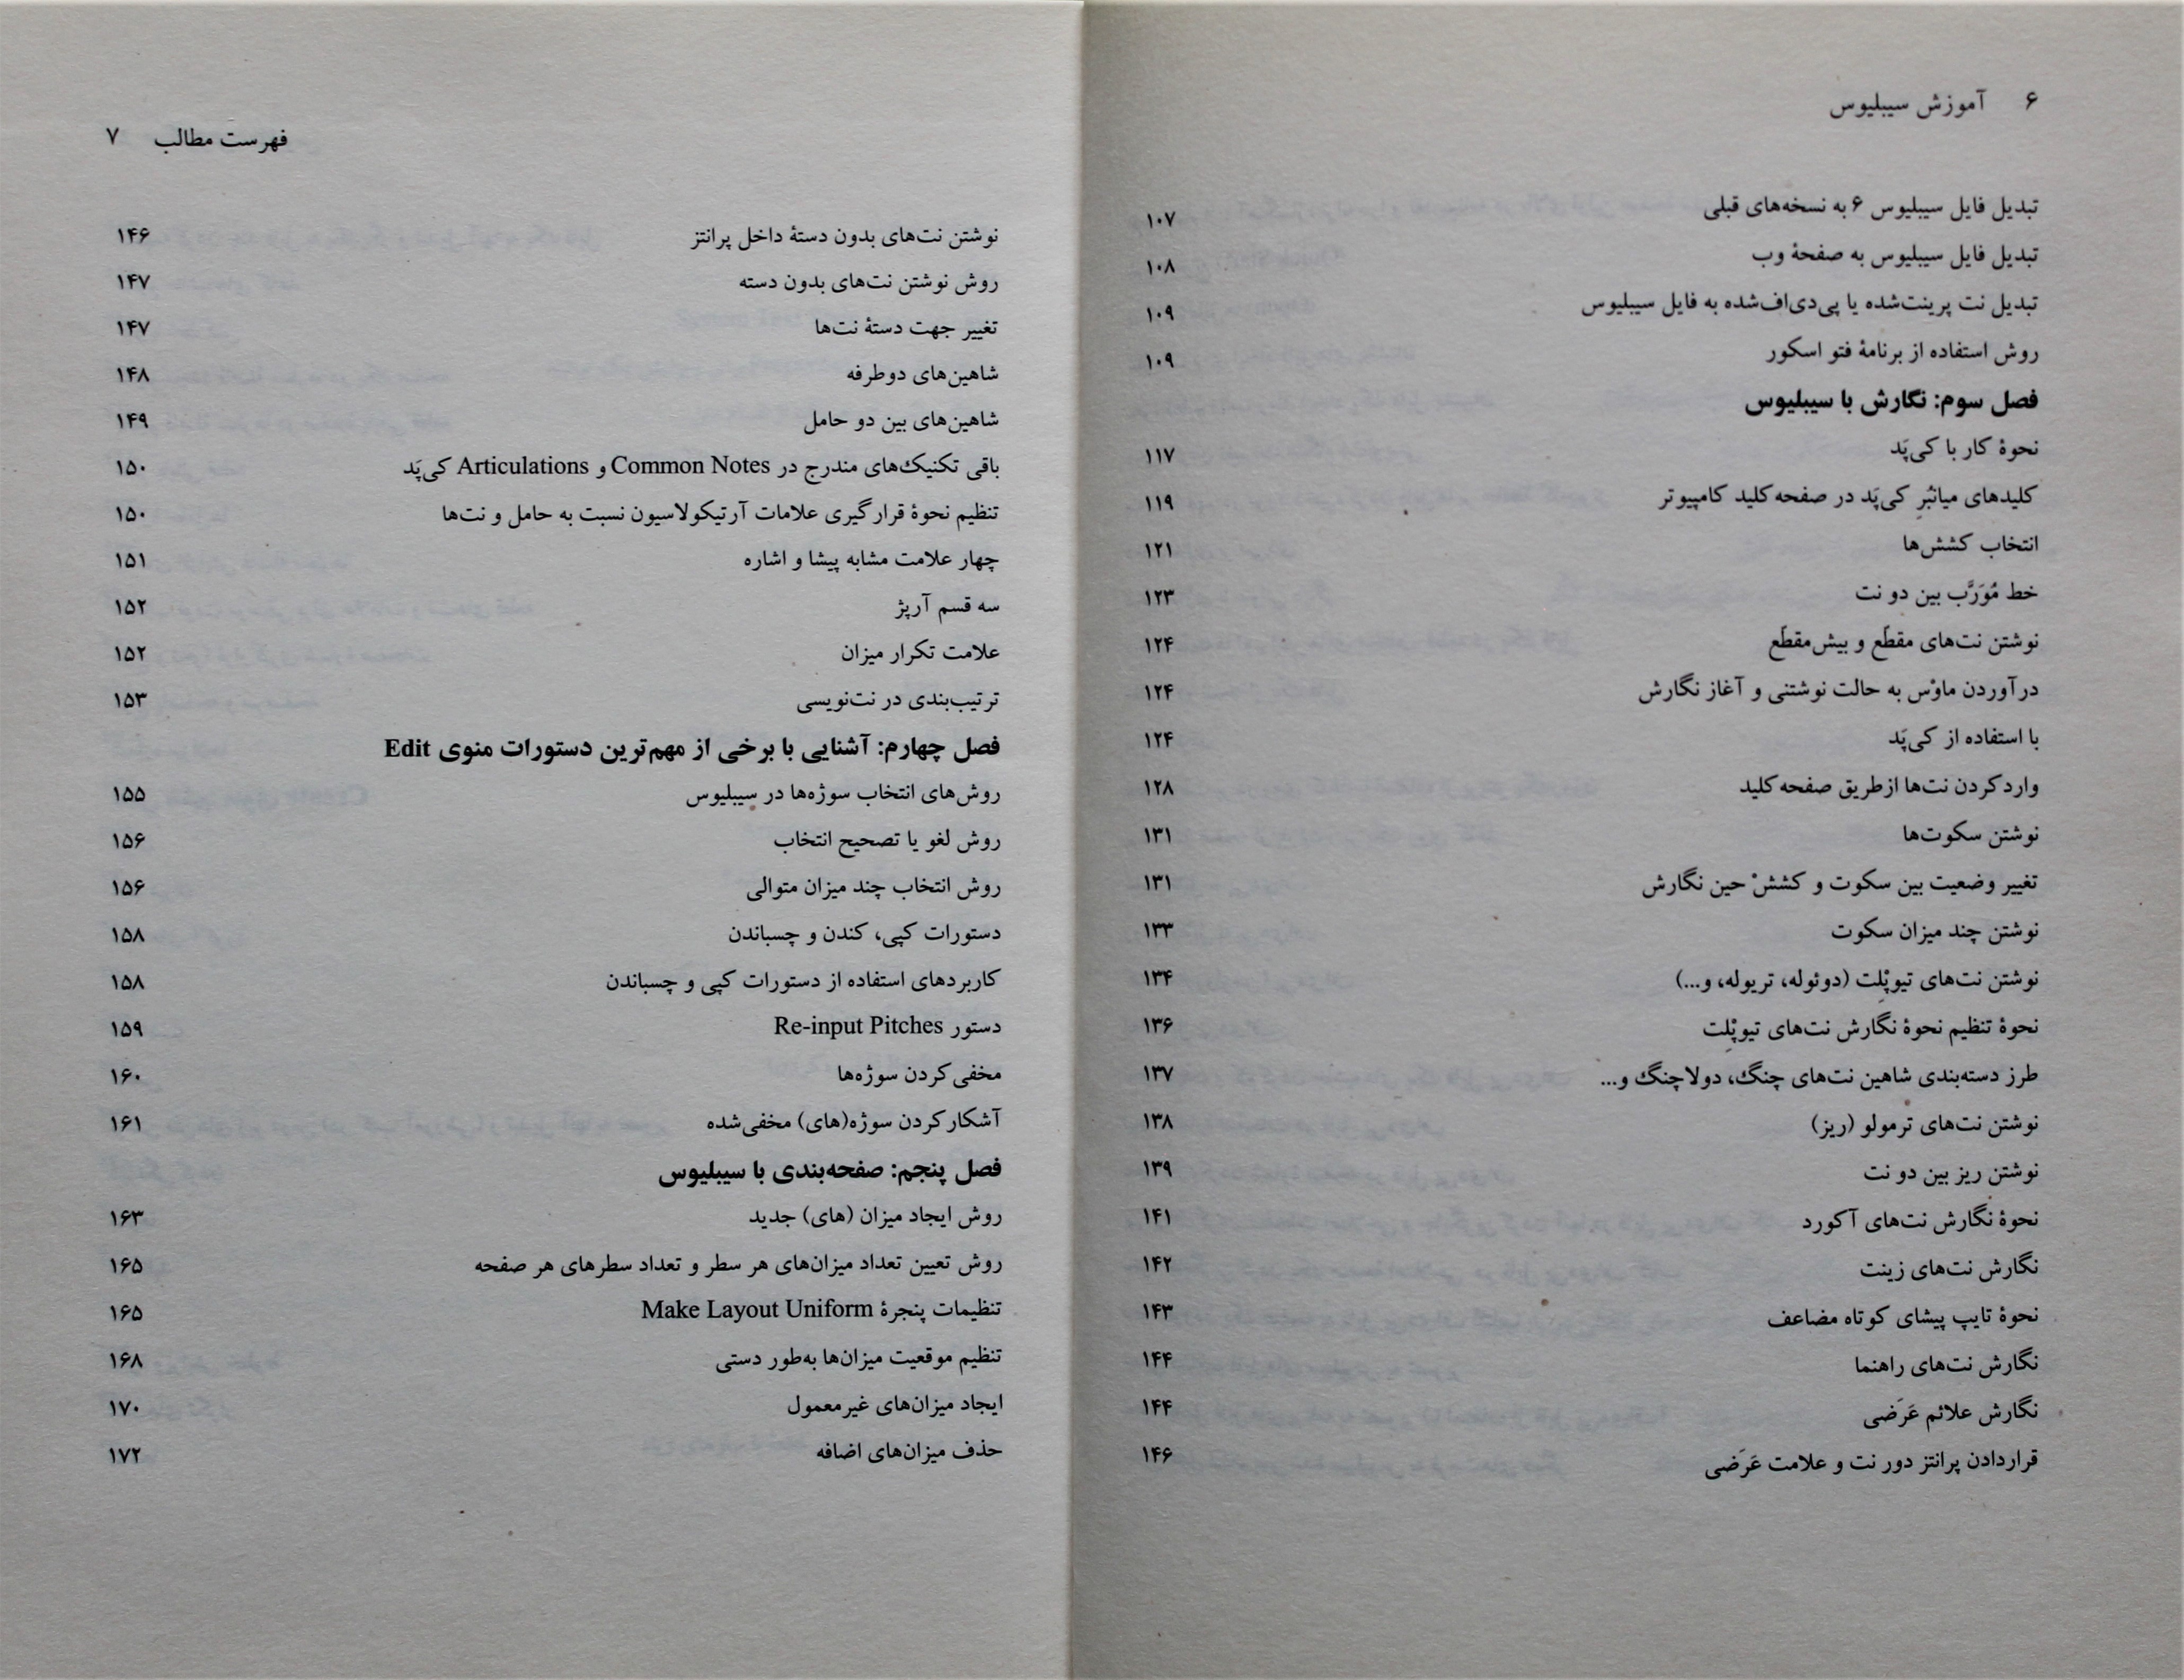 ۶ آموزش سیبلیوس
تبدیل فایل سیبلیوس ۶ به نسخه‌های قبلی ۱۰۷
تبدیل فایل سیبلیوس به صفحهٔ وب ۱۰۸
تبدیل نت پرینت‌شده یا پی‌دی‌اف‌شده به فایل سیبلیوس ۱۰۹
روش استفاده از برنامهٔ فتو اسکور ۱۰۹
فصل سوم: نگارش با سیبلیوس
نحوهٔ کار با کی‌پَد ۱۱۷
کلیدهای میانبُرِ کی‌پَد در صفحه‌کلید کامپیوتر ۱۱۹
انتخاب کشش‌ها ۱۲۱
خط مُوَرَّب بین دو نت ۱۲۳
نوشتن نت‌های مقطّع و بیش‌مقطّع ۱۲۴
درآوردن ماوْس به حالت نوشتنی و آغاز نگارش ۱۲۴
با استفاده از کی‌پَد ۱۲۴
واردکردن نت‌ها ازطریق صفحه‌کلید ۱۲۸
نوشتن سکوت‌ها ۱۳۱
تغییر وضعیت بین سکوت و کششْ حین نگارش ۱۳۱
نوشتن چند میزان سکوت ۱۳۳
نوشتن نت‌های تیوپْلِت (دوئوله، تریوله، و...) ۱۳۴
نحوهٔ تنظیم نحوهٔ نگارش نت‌های تیوپْلِت ۱۳۶
طرز دسته‌بندی شاهین نت‌های چنگ، دولاچنگ و... ۱۳۷
نوشتن نت‌های ترمولو (ریز) ۱۳۸
نوشتن ریز بین دو نت ۱۳۹
نحوهٔ نگارش نت‌های آکورد ۱۴۱
نگارش نت‌های زینت ۱۴۲
نحوهٔ تایپ پیشای کوتاه مضاعف ۱۴۳
نگارش نت‌های راهنما ۱۴۴
نگارش علائم عَرَضی ۱۴۴
قراردادن پرانتز دور نت و علامت عَرَضی ۱۴۶
فهرست مطالب ۷
نوشتن نت‌های بدون دستهٔ داخل پرانتز ۱۴۶
روش نوشتن نت‌های بدون دسته ۱۴۷
تغییر جهت دستهٔ نت‌ها ۱۴۷
شاهین‌های دوطرفه ۱۴۸
شاهین‌های بین دو حامل ۱۴۹
باقی تکنیک‌های مندرج در Common Notes و Articulations کی‌پَد ۱۵۰
تنظیم نحوهٔ قرارگیری علامات آرتیکولاسیون نسبت به حامل و نت‌ها ۱۵۰
چهار علامت مشابه پیشا و اشاره ۱۵۱
سه قسم آرپژ ۱۵۲
علامت تکرار میزان ۱۵۲
ترتیب‌بندی در نت‌نویسی ۱۵۳
فصل چهارم: آشنایی با برخی از مهم‌ترین دستورات منوی Edit
روش‌های انتخاب سوژه‌ها در سیبلیوس ۱۵۵
روش لغو یا تصحیح انتخاب ۱۵۶
روش انتخاب چند میزان متوالی ۱۵۶
دستورات کپی، کندن و چسباندن ۱۵۸
کاربردهای استفاده از دستورات کپی و چسباندن ۱۵۸
دستور Re-input Pitches ۱۵۹
مخفی‌کردن سوژه‌ها ۱۶۰
آشکارکردن سوژه(های) مخفی‌شده ۱۶۱
فصل پنجم: صفحه‌بندی با سیبلیوس
روش ایجاد میزان (های) جدید ۱۶۳
روش تعیین تعداد میزان‌های هر سطر و تعداد سطرهای هر صفحه ۱۶۵
تنظیمات پنجرهٔ Make Layout Uniform ۱۶۵
تنظیم موقعیت میزان‌ها به‌طور دستی ۱۶۸
ایجاد میزان‌های غیرمعمول ۱۷۰
حذف میزان‌های اضافه ۱۷۲